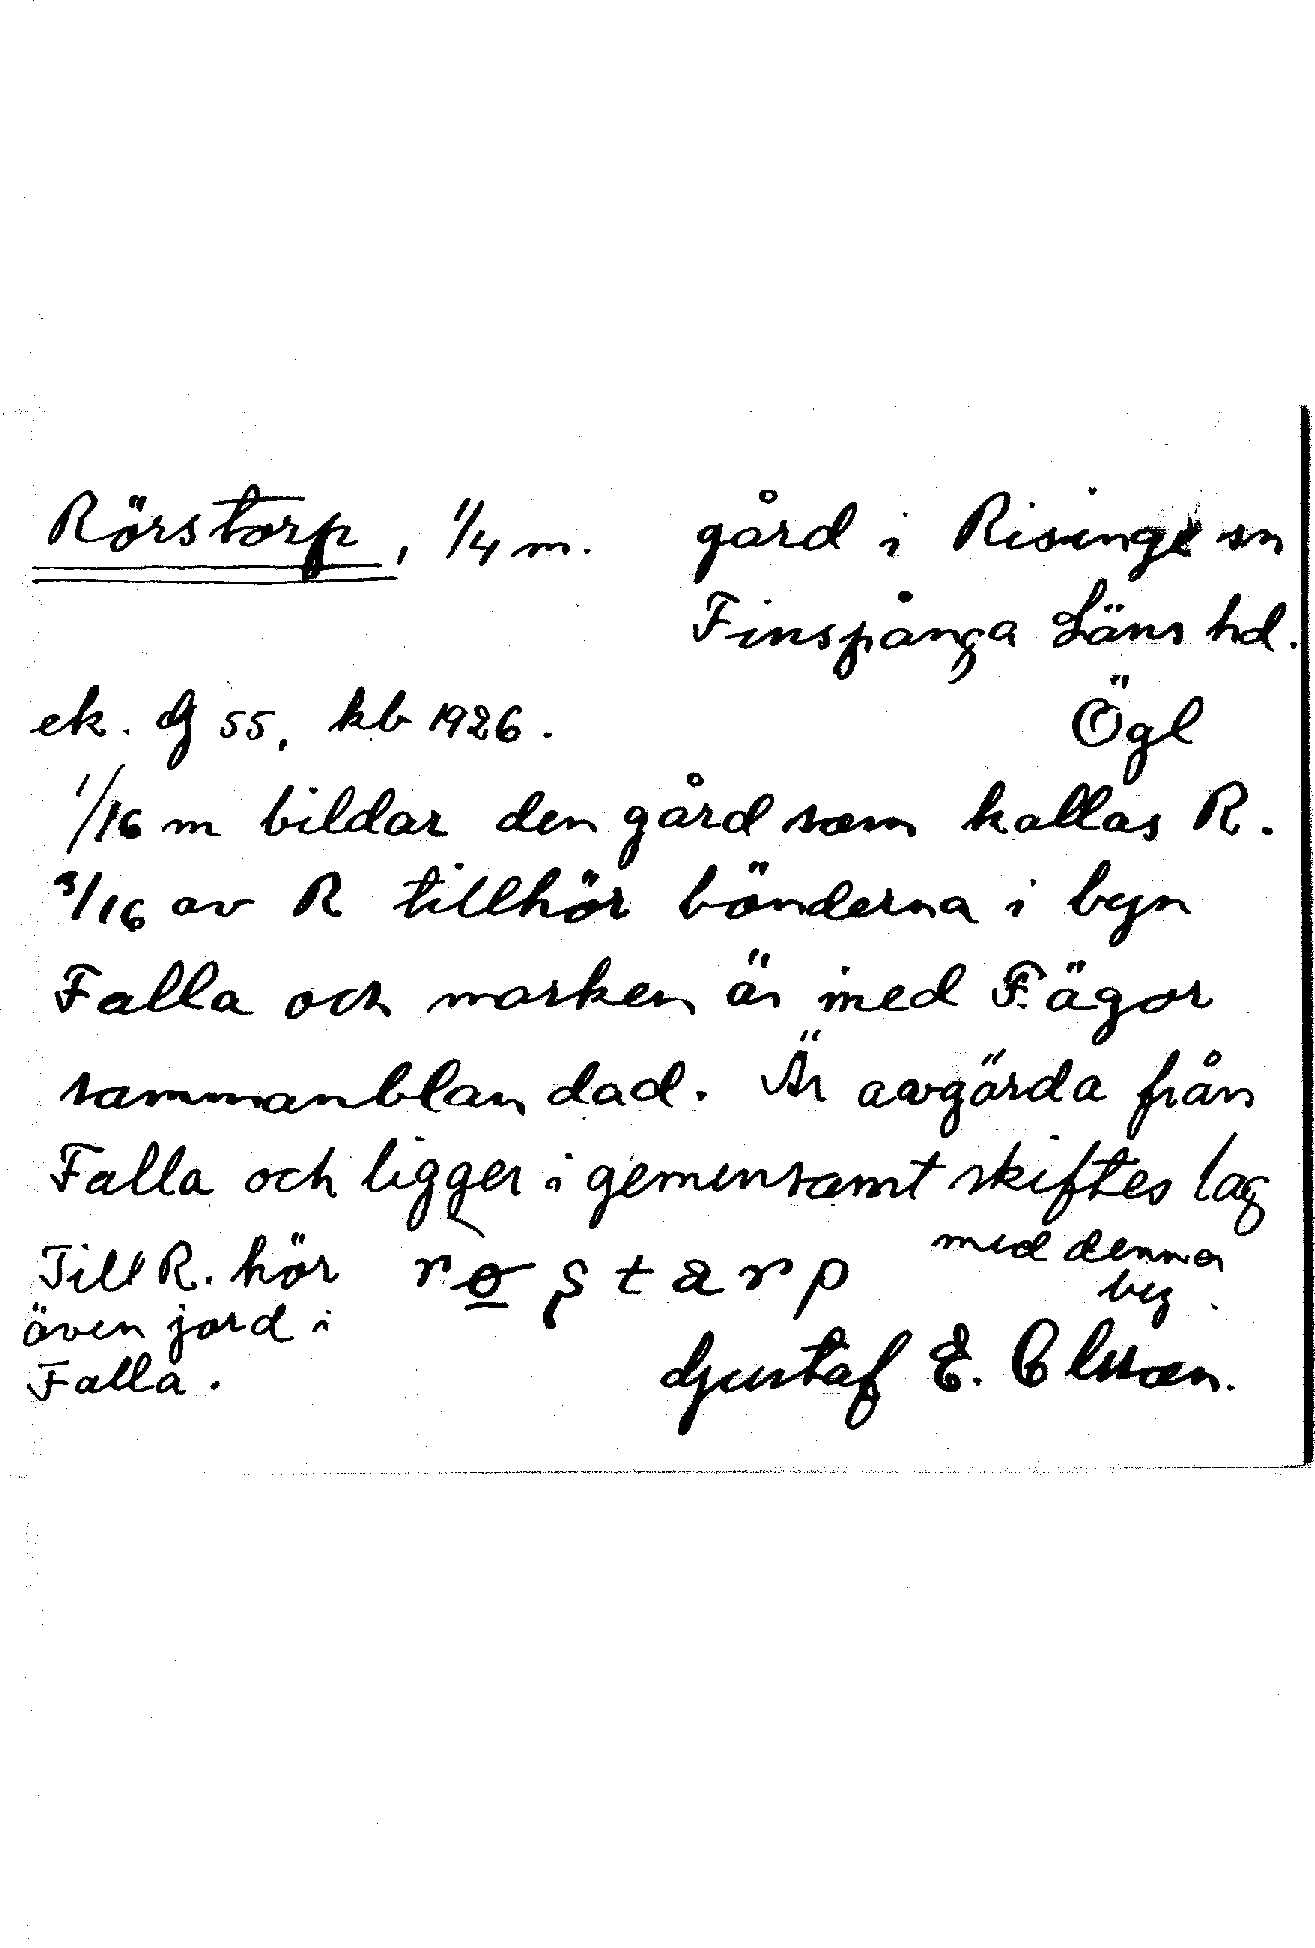 Rörstorp, 1/4 m. gård i Risinge sn
Finspånga Läns hd.
ek. G 55, kb 1926. Ögl
1/16 m bildar den gård som kallas R.
3/16 av R tillhör bönderna i byn
Falla och marken är med F. ägor
sammanblandad. Är avgärda från
Falla och ligger i gemensamt skiftes lag
med denna
by.
Till R. hör
även jord i
Falla.
Gustaf E. Olsson.